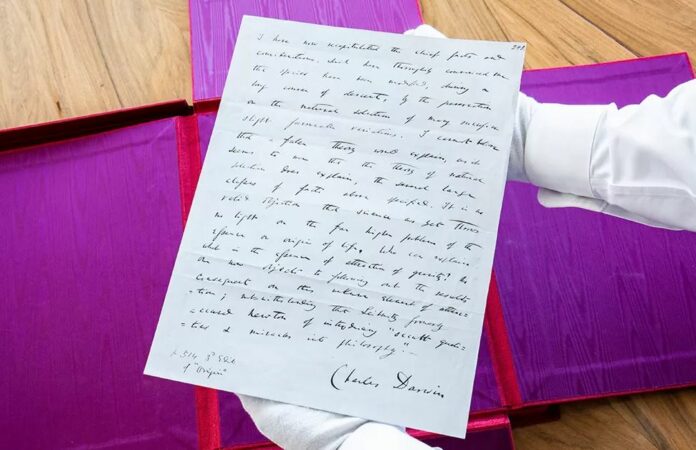 I have now recapitulated the chief facts and
considerations, which have thoroughly convinced me
that species have been modified, during a
long course of descent, by the preservation
or the natural selection of many successive
slight favourable variations. I cannot believe
that a false theory would explain, as it
seems to me that the theory of natural
selection does explain, the several large
classes of facts above specified. It is no
valid objection that science as yet throws
no light on the far higher problem of the
essence or origin of life. Who can explain
what is the essence of attraction of gravity? No
one now objects to following out the results
consequent on this unknown element of attrac-
-tion; notwithstanding that Leibnitz formerly
accused Newton of introducing "occult quali-
-ties & miracles into philosophy".—
Charles Darwin
p 514 3d Edit
of "Origin"